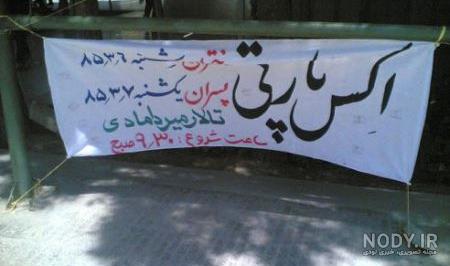 اکس پارتی
دختران شنبه ۸۵،۳،۶
پسران یکشنبه ۸۵،۳،۷
تالار میردامادی
ساعت شروع : ۹،۳۰ صبح
NODY.IR
مجله تصویری، خبری نودی